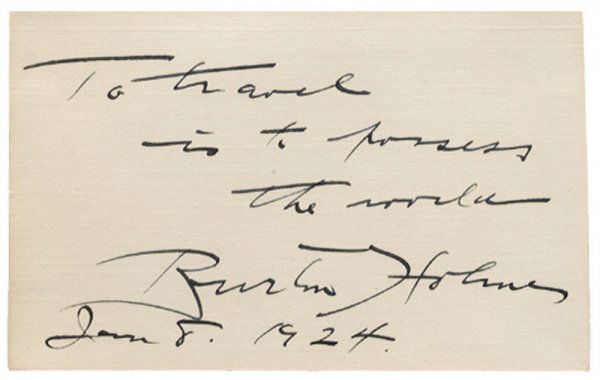 To travel
is to possess
the world
Burton Holmes
Jan 8. 1924.